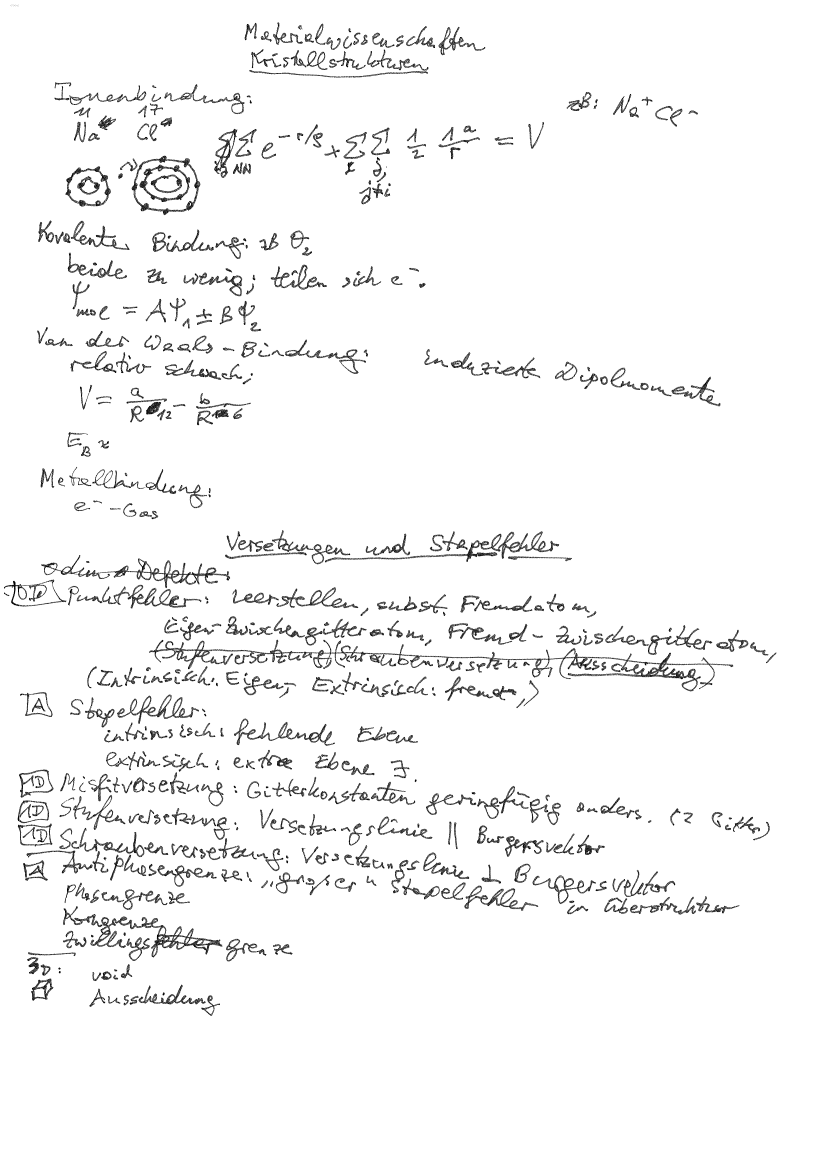 Materialwissenschaften
Kristallstrukturen
Ionenbindung:
zB: Na⁺ Cl⁻
11 17
Na Cl
∑ NN e^(-r/ρ) ± ∑i ∑j, j≠i 1/2 1a/r = V
Kovalente Bindung: zB O₂
beide zu wenig; teilen sich e⁻.
Ψmol = AΨ₁ ± BΨ₂
Van der Waals-Bindung: induzierte Dipolmomente
relativ schwach;
V = a/R¹² - b/R⁶
E_B ≈
Metallbindung:
e⁻-Gas
Versetzungen und Stapelfehler
0dim Defekte:
0D Punktfehler: Leerstellen, subst. Fremdatom,
Eigen-Zwischengitteratom, Fremd-Zwischengitteratom,
(Stufenversetzung), (Schraubenversetzung), (Ausscheidung)
(Intrinsisch: Eigen-, Extrinsisch: fremd-,)
A Stapelfehler:
intrinsisch: fehlende Ebene
extrinsisch: extra Ebene
1D Misfitversetzung: Gitterkonstanten geringfügig anders. (2 Gitter)
1D Stufenversetzung: Versetzungslinie || Burgersvektor
1D Schraubenversetzung: Versetzungslinie ⊥ Burgersvektor
A Antiphasengrenze: „großer" Stapelfehler in Überstruktur
Phasengrenze
Korngrenze
Zwillingsfehler grenze
3D: void
Ausscheidung